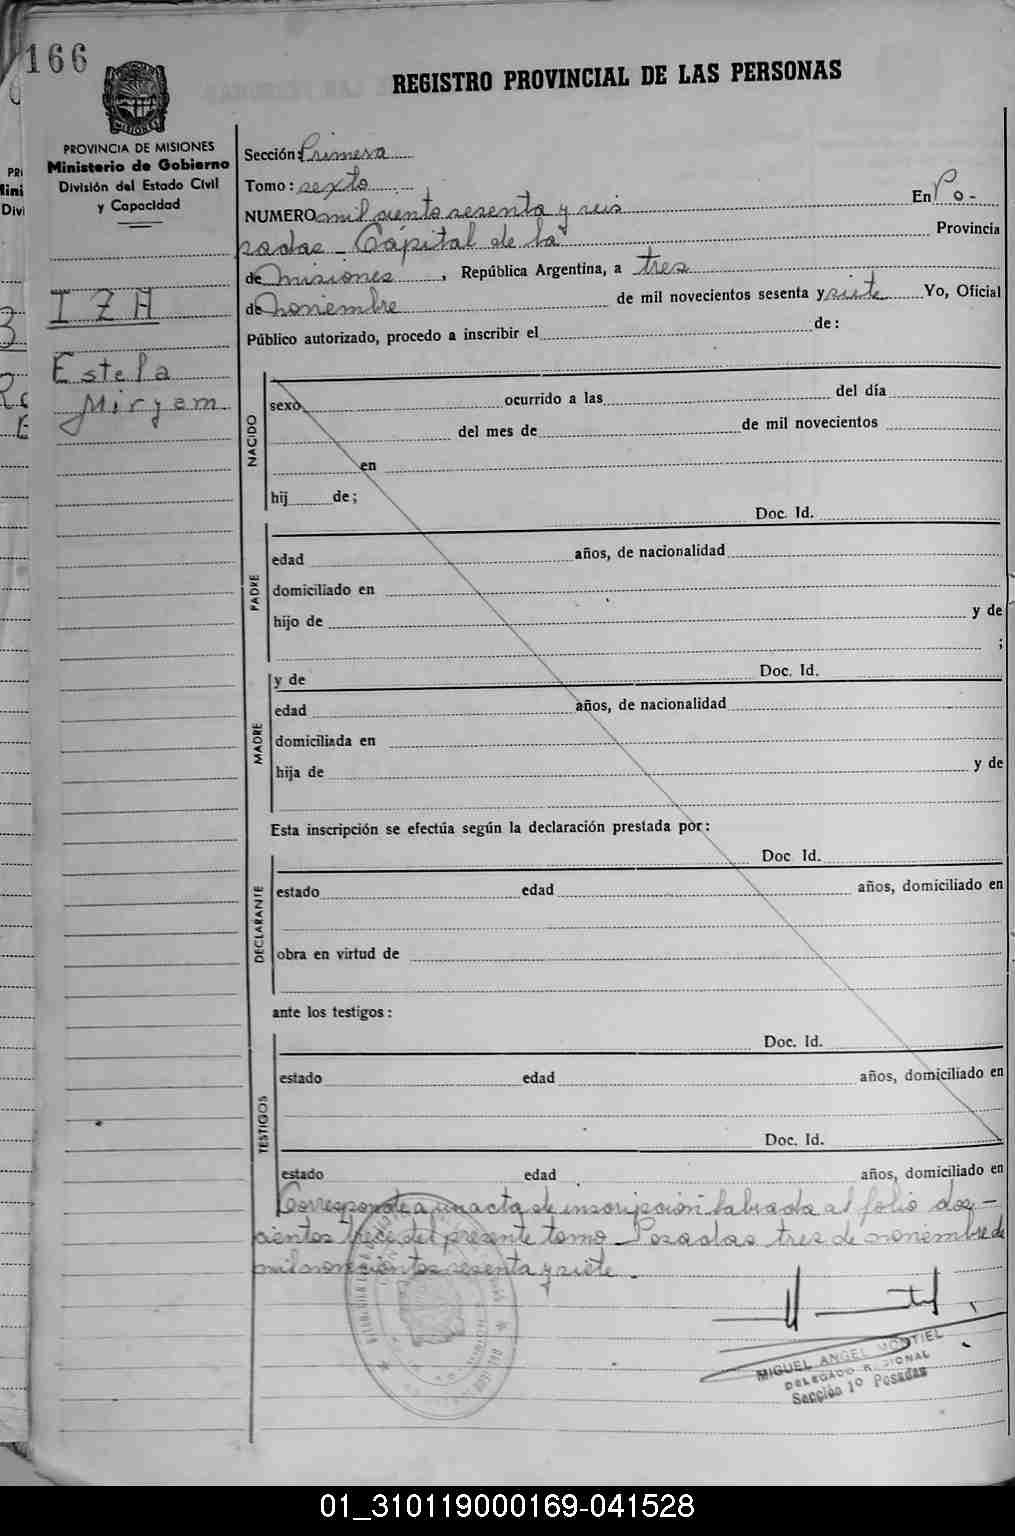 166
REGISTRO PROVINCIAL DE LAS PERSONAS
MISIONES
PROVINCIA DE MISIONES
Ministerio de Gobierno
División del Estado Civil
y Capacidad
IZA
Estela
Miryam
Sección: Primera
Tomo: sexto
NUMERO mil ciento sesenta y seis En Po-
sadas - Capital de la Provincia
de Misiones, República Argentina, a tres
de noviembre de mil novecientos sesenta y siete Yo, Oficial
Público autorizado, procedo a inscribir el de:
NACIDO
sexo ocurrido a las del día
del mes de de mil novecientos
en
hij de;
Doc. Id.
PADRE
edad años, de nacionalidad
domiciliado en
hijo de y de
;
y de Doc. Id.
MADRE
edad años, de nacionalidad
domiciliada en
hija de y de
Esta inscripción se efectúa según la declaración prestada por:
Doc Id.
DECLARANTE
estado edad años, domiciliado en
obra en virtud de
ante los testigos:
Doc. Id.
TESTIGOS
estado edad años, domiciliado en
Doc. Id.
estado edad años, domiciliado en
Corresponde a un acta de inscripción labrada al folio dos-
cientos trece del presente tomo. Posadas tres de noviembre de
mil novecientos sesenta y siete.
MIGUEL ANGEL MONTIEL
DELEGADO REGIONAL
Sección 1º Posadas
01_310119000169-041528